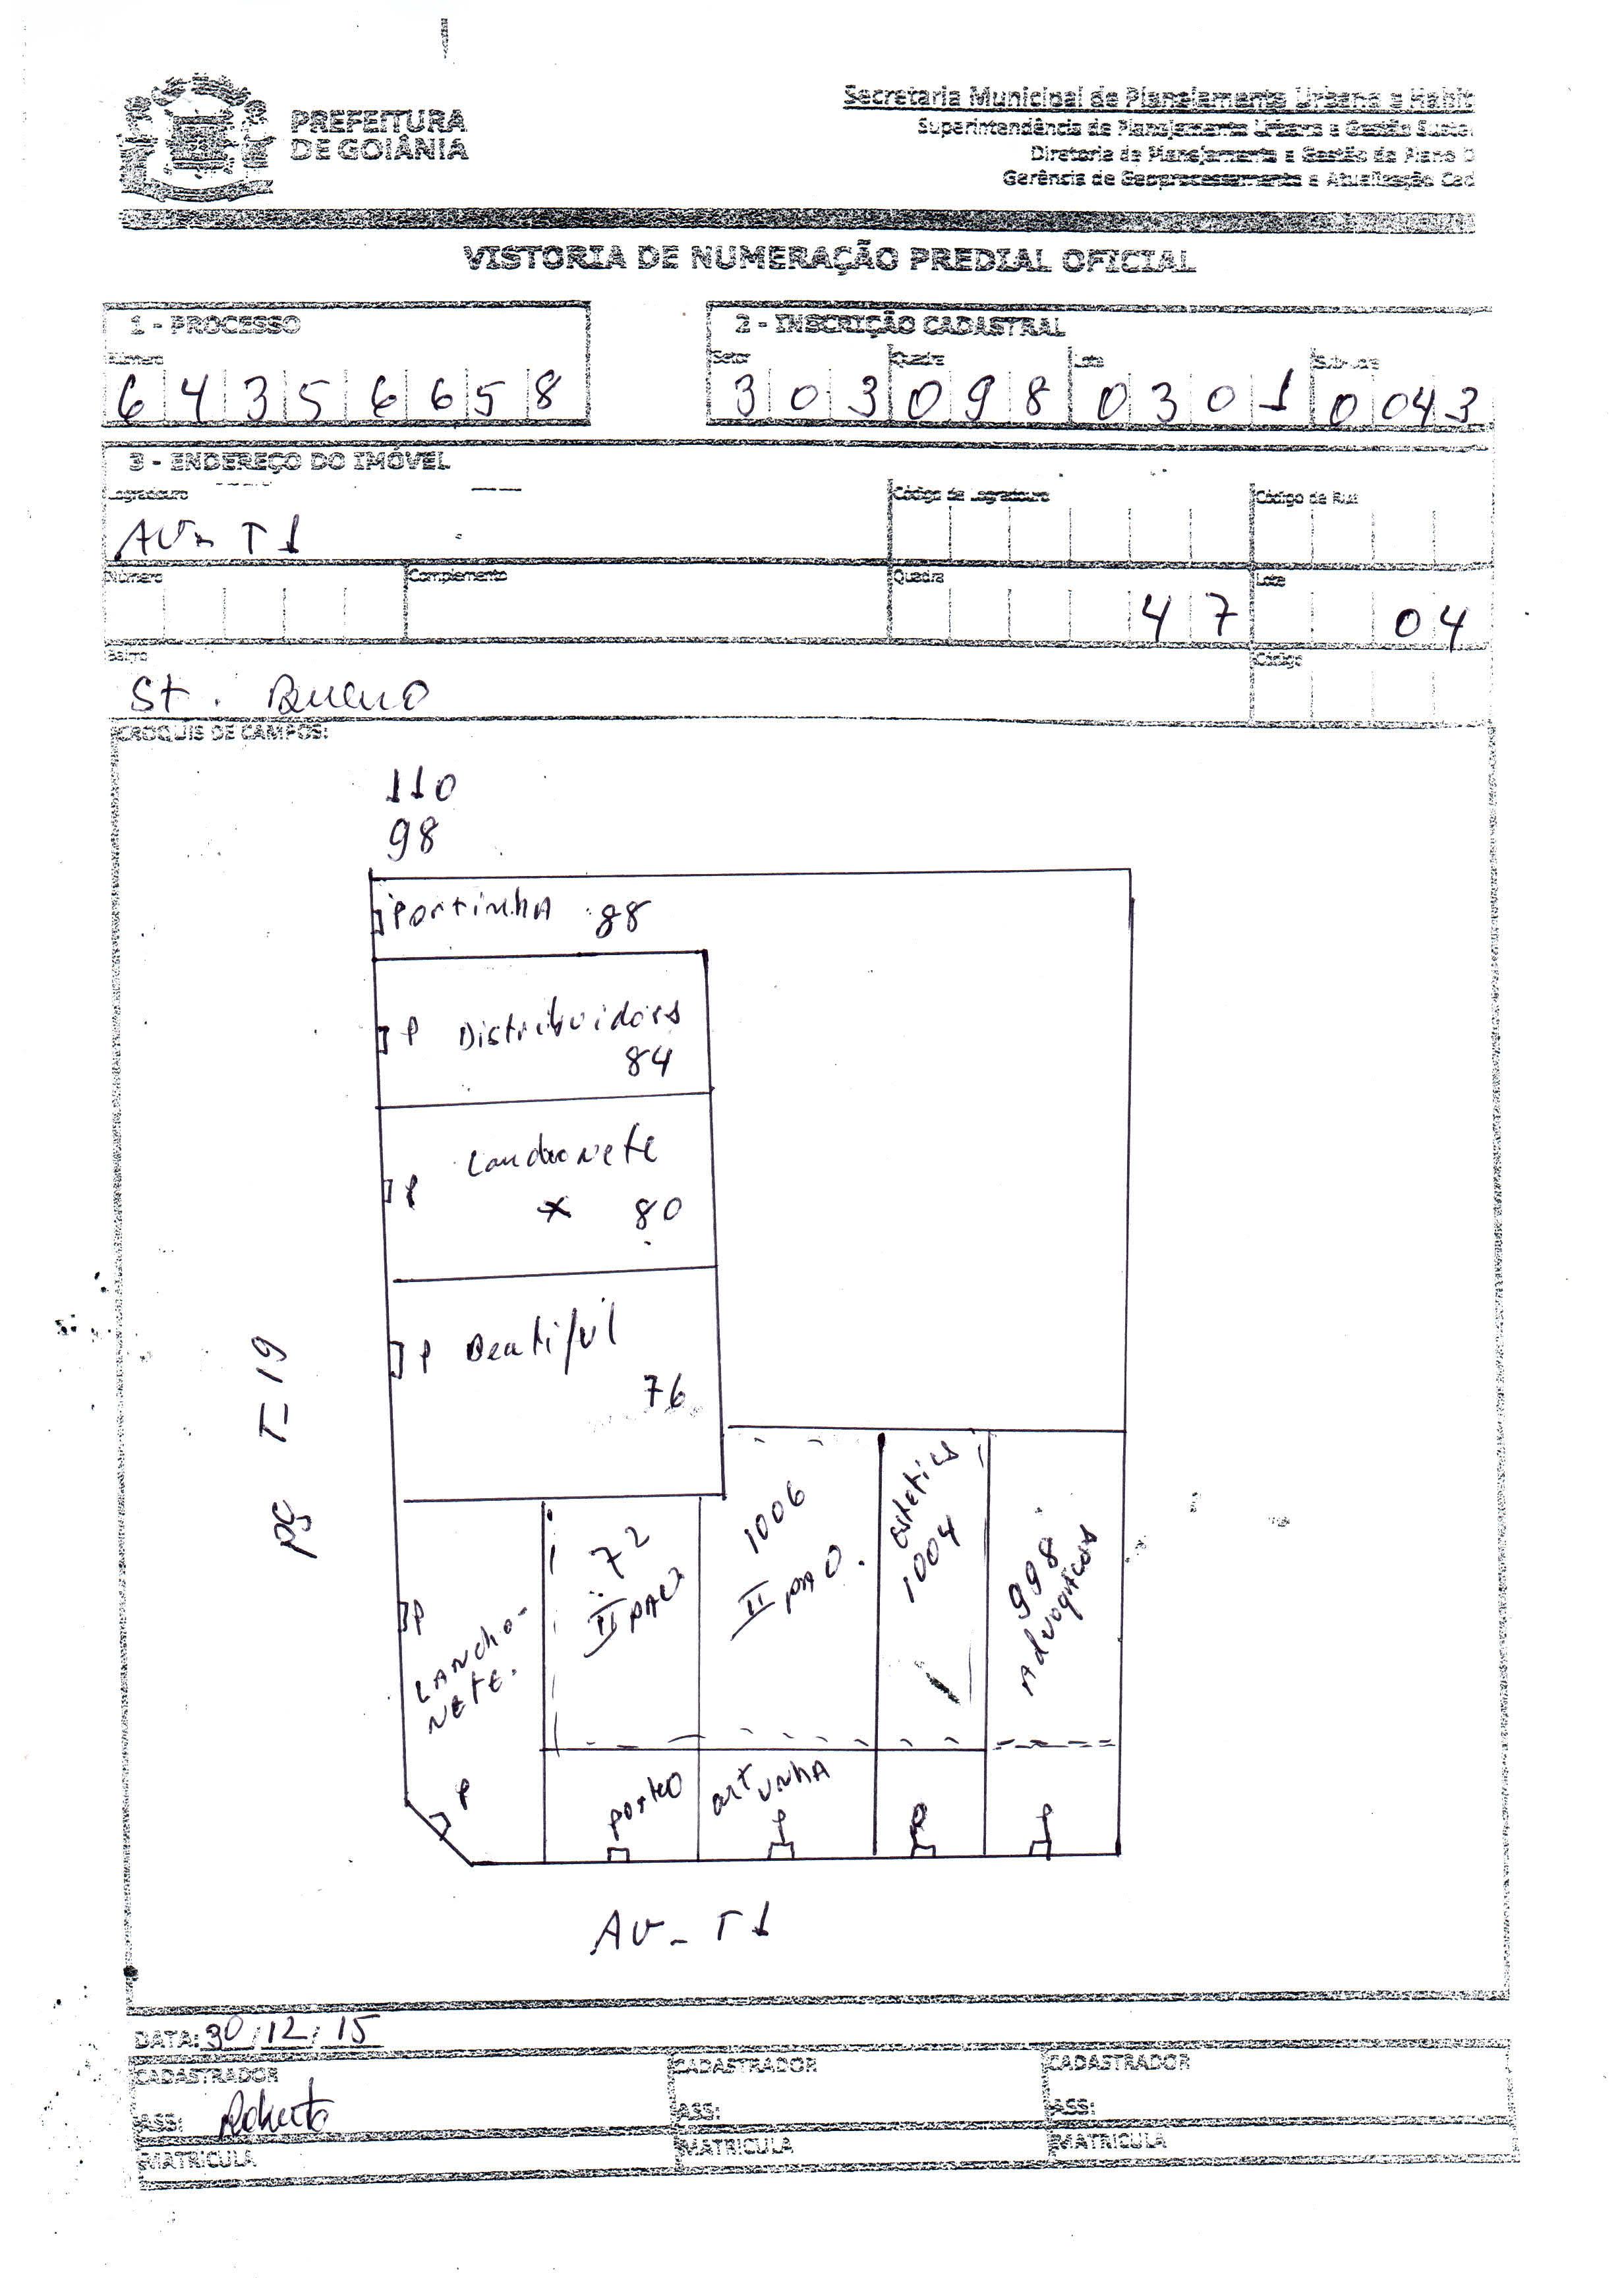 PREFEITURA
DE GOIÂNIA
Secretaria Municipal de Planejamento Urbano e Habit
Superintendência de Planejamento Urbano e Gestão Suste
Diretoria de Planejamento e Gestão do Plano D
Gerência de Geoprocessamento e Atualização Cad
VISTORIA DE NUMERAÇÃO PREDIAL OFICIAL
1 - PROCESSO
Número
6 4 3 5 6 6 5 8
2 - INSCRIÇÃO CADASTRAL
Setor Quadra Lote Sub-Lote
3 0 3 0 9 8 0 3 0 1 0 0 4 3
3 - ENDEREÇO DO IMÓVEL
Logradouro Código de Logradouro Código da Rua
AV- T1
Número Complemento Quadra Lote
47 04
Bairro Código
St. Bueno
CROQUIS DE CAMPOS:
110
98
Portinha 88
P Distribuidora
84
P Lanchonete
x 80
P Beatiful
76
PÇ T-19
P
LANCHO-
NETE.
P
72
II PAV
1006
II PAV.
estetica
1004
998
Advogados
portão
P
P
P
AV- T1
DATA: 30/12/15
CADASTRADOR CADASTRADOR CADASTRADOR
ASS: Roberto ASS: ASS:
MATRICULA MATRICULA MATRICULA